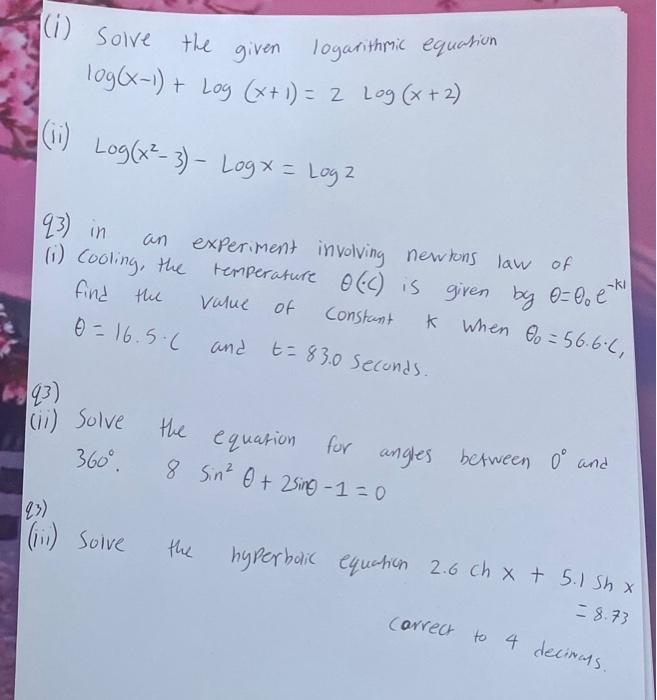 (i) Solve the given logarithmic equation
log(x-1) + Log (x+1) = 2 Log (x+2)
(ii) Log(x²-3) - Log x = Log 2
q3) in an experiment involving newtons law of
(i) cooling, the temperature θ(°C) is given by θ=θ₀ e^-kt
find the value of constant k when θ₀ = 56.6°C,
θ = 16.5°C and t = 83.0 seconds.
q3)
(ii) Solve the equation for angles between 0° and
360°. 8 Sin² θ + 2sinθ - 1 = 0
q3)
(iii) Solve the hyperbolic equation 2.6 ch x + 5.1 Sh x
= 8.73
correct to 4 decimals.